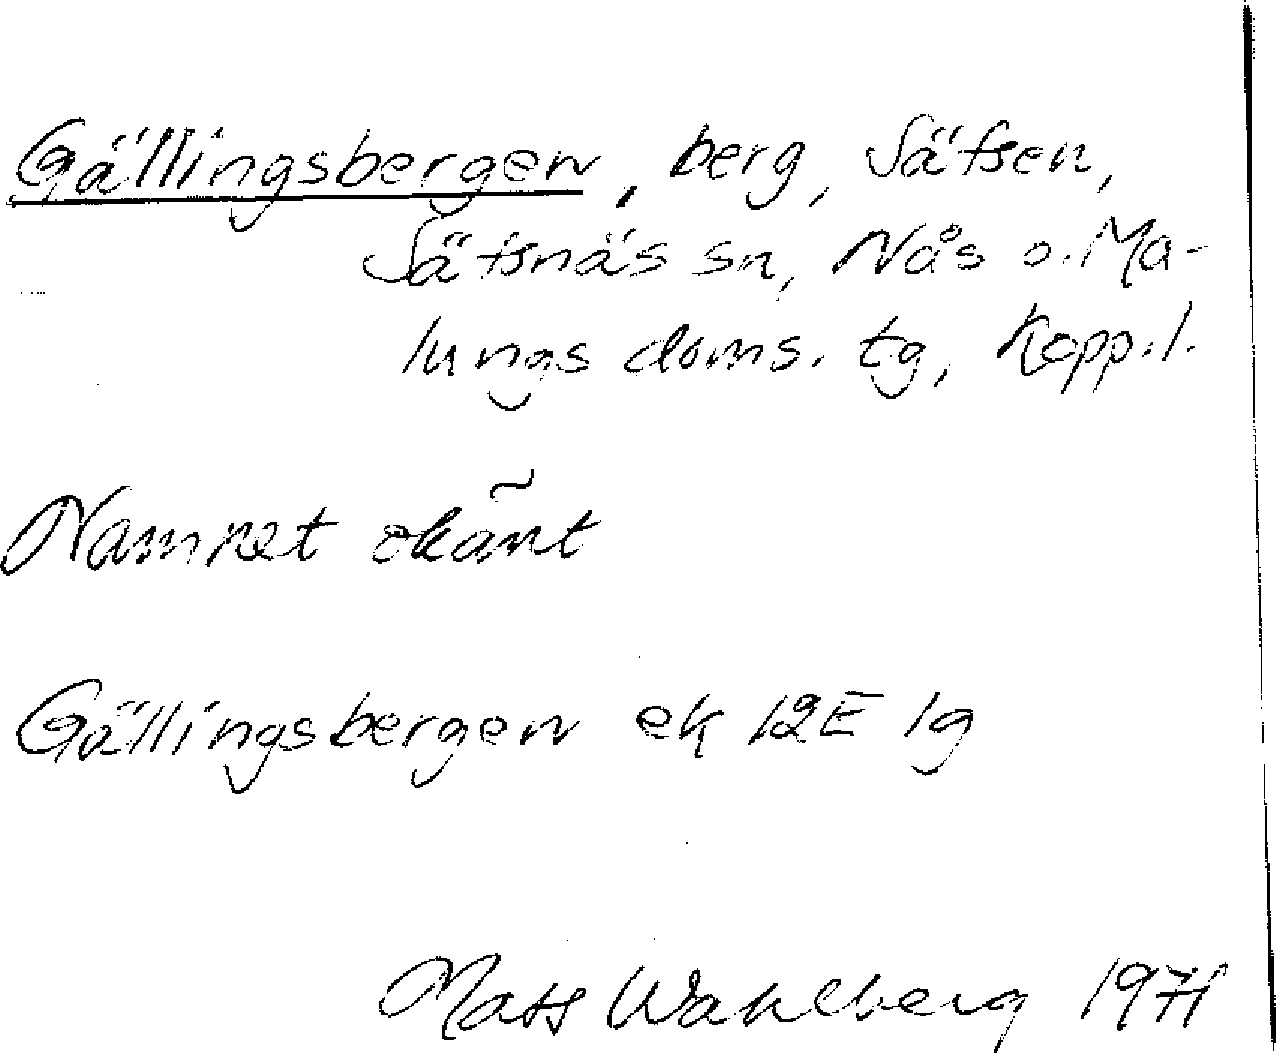 Gällingsbergen, berg, Säfsen,
Säfsnäs sn, Nås o. Ma-
lungs doms. tg, Kopp.l.
Namnet okänt
Gällingsbergen ek 12E 1g
Mats Wahlberg 1971